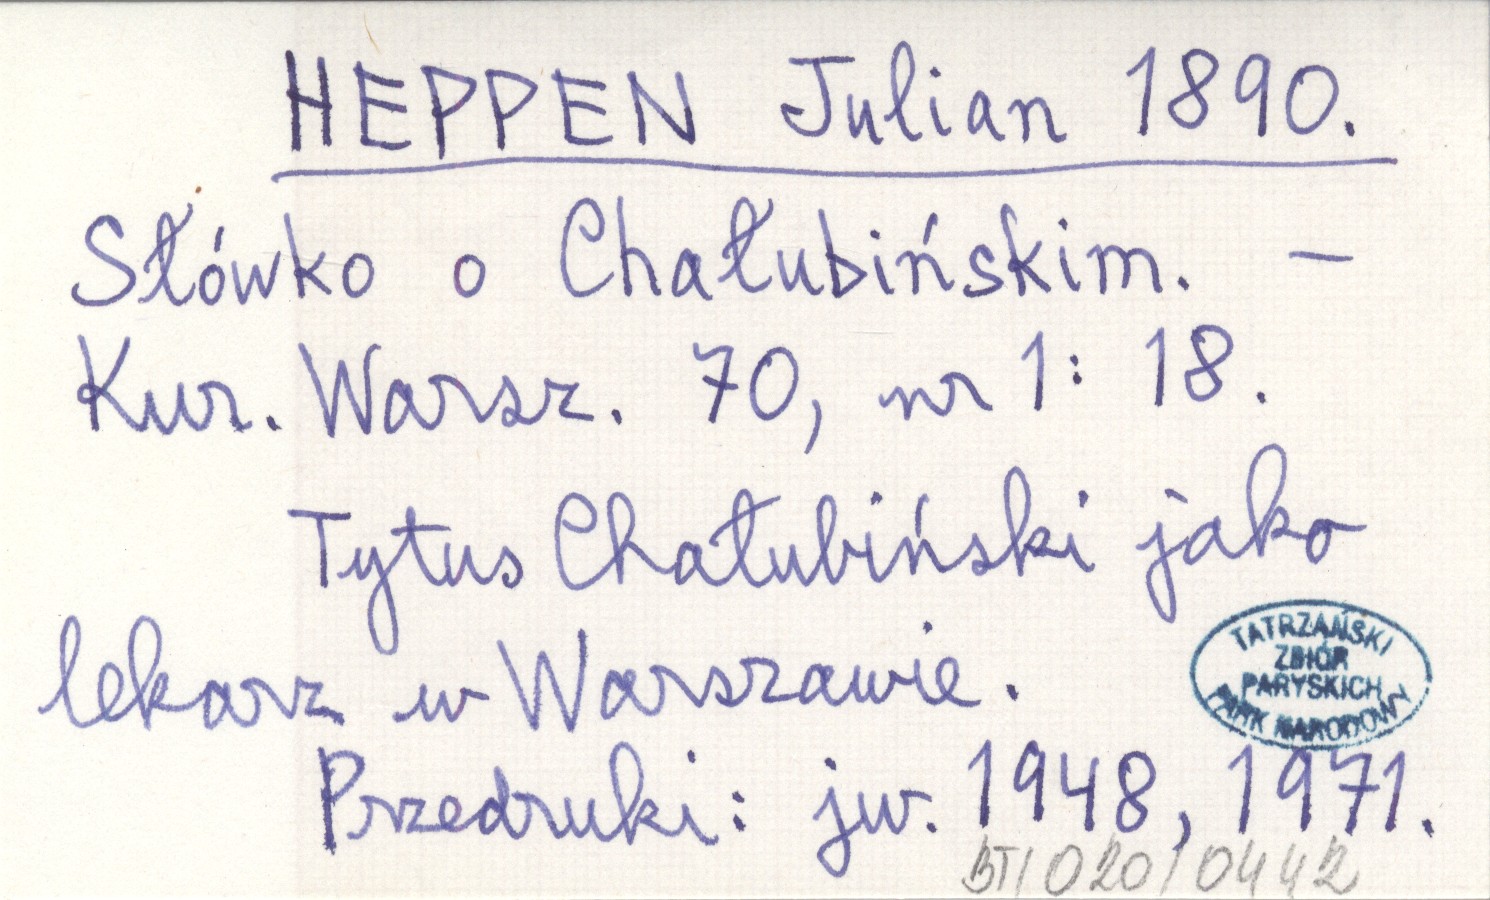 HEPPEN Julian 1890.
Słówko o Chałubińskim. –
Kur. Warsz. 70, nr 1: 18.
Tytus Chałubiński jako
lekarz w Warszawie.
TATRZAŃSKI
ZBIÓR
PARYSKICH
PARK NARODOWY
Przedruki: jw. 1948, 1971.
BT/020/0442